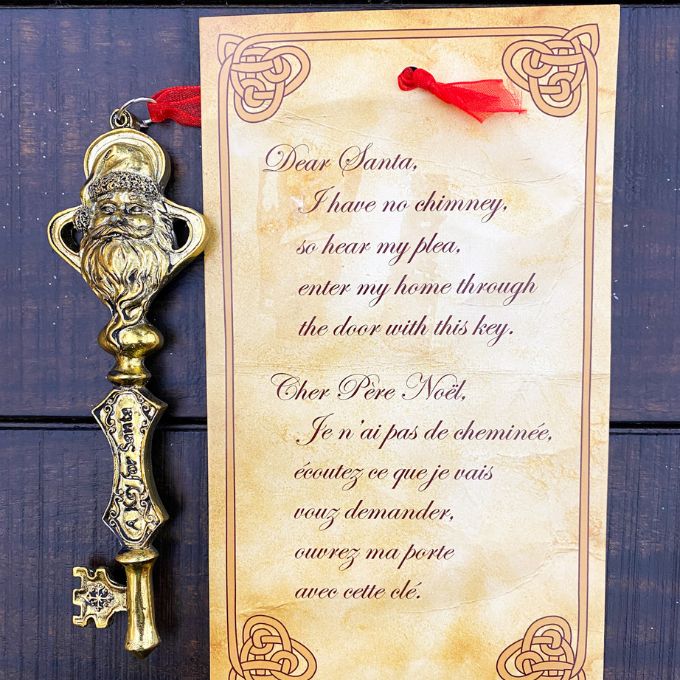 Dear Santa,
I have no chimney,
so hear my plea,
enter my home through
the door with this key.
Cher Père Noël,
Je n'ai pas de cheminée,
écoutez ce que je vais
vouz demander,
ouvrez ma porte
avec cette clé.
A Key for Santa